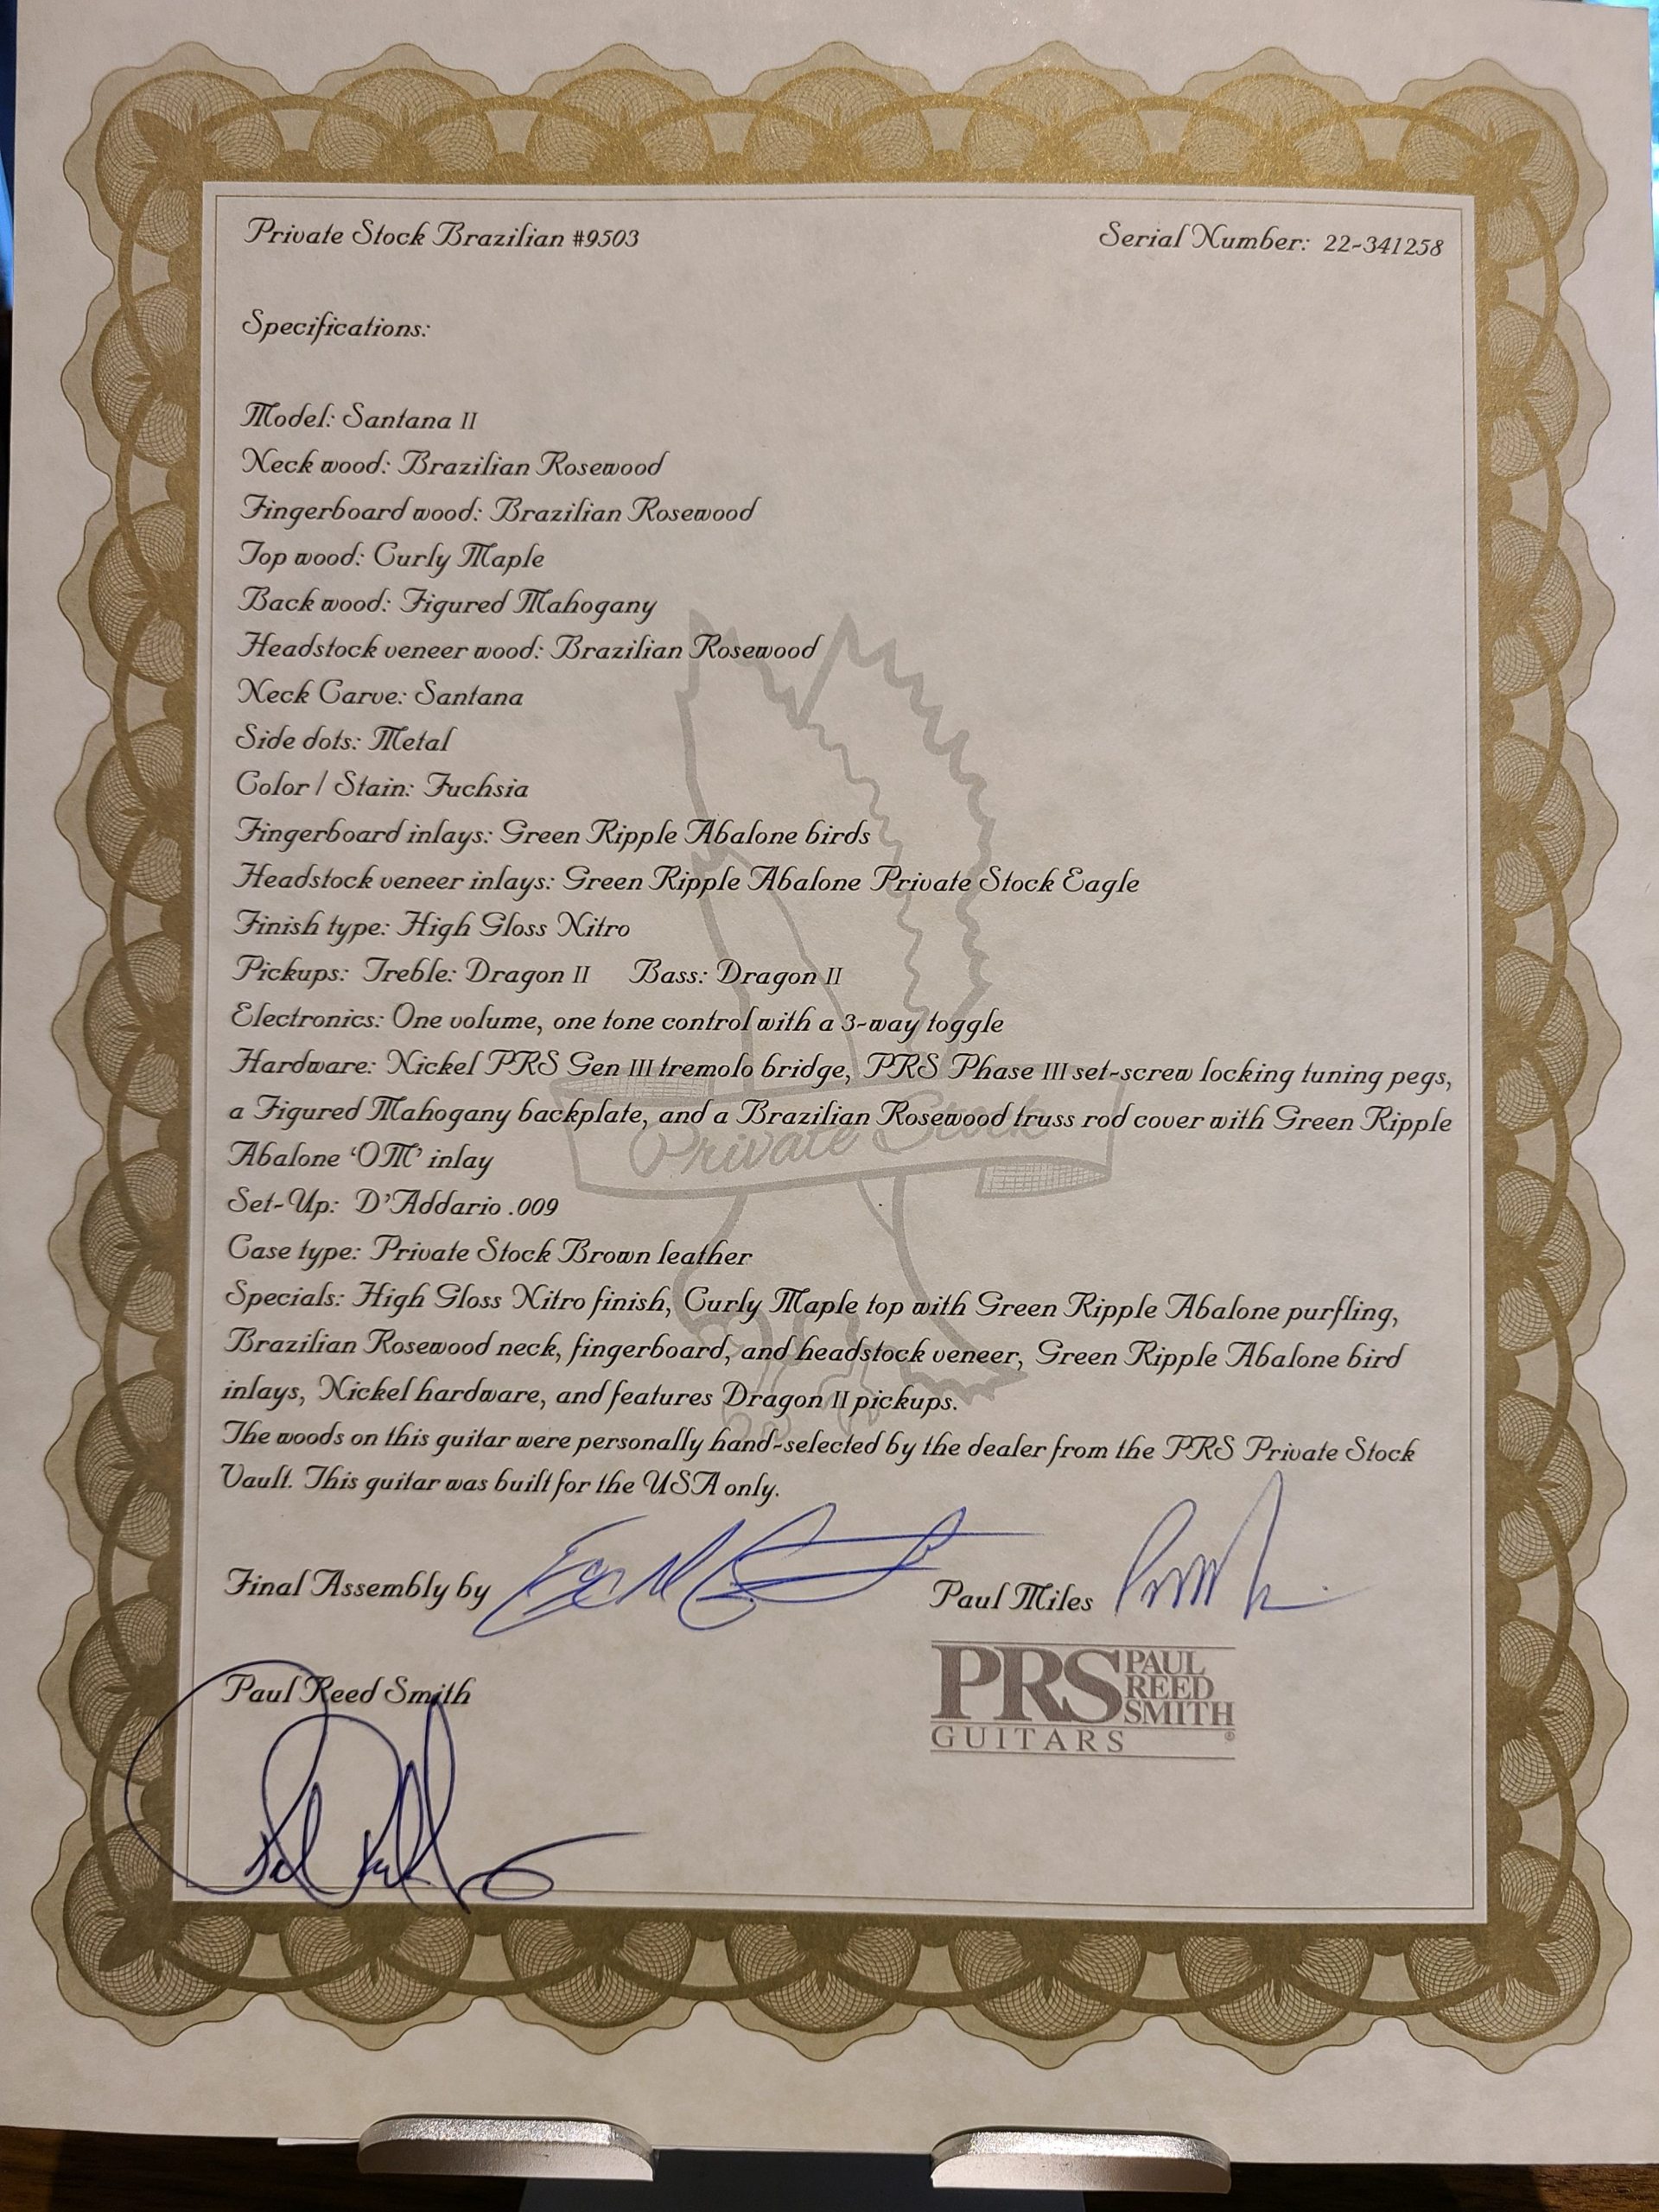 Private Stock Brazilian #9503 Serial Number: 22-341258
Specifications:
Model: Santana II
Neck wood: Brazilian Rosewood
Fingerboard wood: Brazilian Rosewood
Top wood: Curly Maple
Back wood: Figured Mahogany
Headstock veneer wood: Brazilian Rosewood
Neck Carve: Santana
Side dots: Metal
Color / Stain: Fuchsia
Fingerboard inlays: Green Ripple Abalone birds
Headstock veneer inlays: Green Ripple Abalone Private Stock Eagle
Finish type: High Gloss Nitro
Pickups: Treble: Dragon II Bass: Dragon II
Electronics: One volume, one tone control with a 3-way toggle
Hardware: Nickel PRS Gen III tremolo bridge, PRS Phase III set-screw locking tuning pegs,
a Figured Mahogany backplate, and a Brazilian Rosewood truss rod cover with Green Ripple
Private Stock
Abalone ‘OM’ inlay
Set-Up: D’Addario .009
Case type: Private Stock Brown leather
Specials: High Gloss Nitro finish, Curly Maple top with Green Ripple Abalone purfling,
Brazilian Rosewood neck, fingerboard, and headstock veneer, Green Ripple Abalone bird
inlays, Nickel hardware, and features Dragon II pickups.
The woods on this guitar were personally hand-selected by the dealer from the PRS Private Stock
Vault. This guitar was built for the USA only.
Final Assembly by Paul Miles
Paul Reed Smith
PRS PAUL
REED
SMITH
GUITARS ®